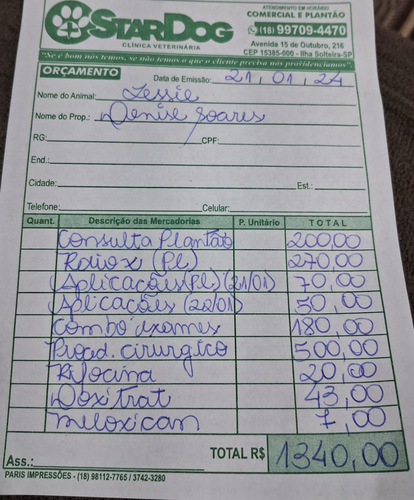 STARDOG
CLÍNICA VETERINÁRIA
ATENDIMENTO EM HORÁRIO
COMERCIAL E PLANTÃO
(18) 99709-4470
Avenida 15 de Outubro, 216
CEP 15385-000 - Ilha Solteira-SP
"Se é bom nós temos, se não temos o que o cliente precisa nós providenciamos".
ORÇAMENTO
Data de Emissão: 21, 01, 24
Nome do Animal: Jessie
Nome do Prop.: Denise Soares
RG: CPF:
End.:
Cidade: Est.:
Telefone: Celular:
Quant. Descrição das Mercadorias P. Unitário TOTAL
Consulta Plantão 200,00
Raio x (Pl) 270,00
Aplicações (Pl) (21/01) 70,00
Aplicações (22/01) 50,00
Combo exames 180,00
Proced. cirurgico 500,00
Rifocina 20,00
Doxitrat 43,00
Meloxican 7,00
Ass.: TOTAL R$ 1340,00
PARIS IMPRESSÕES - (18) 98112-7765 / 3742-3280